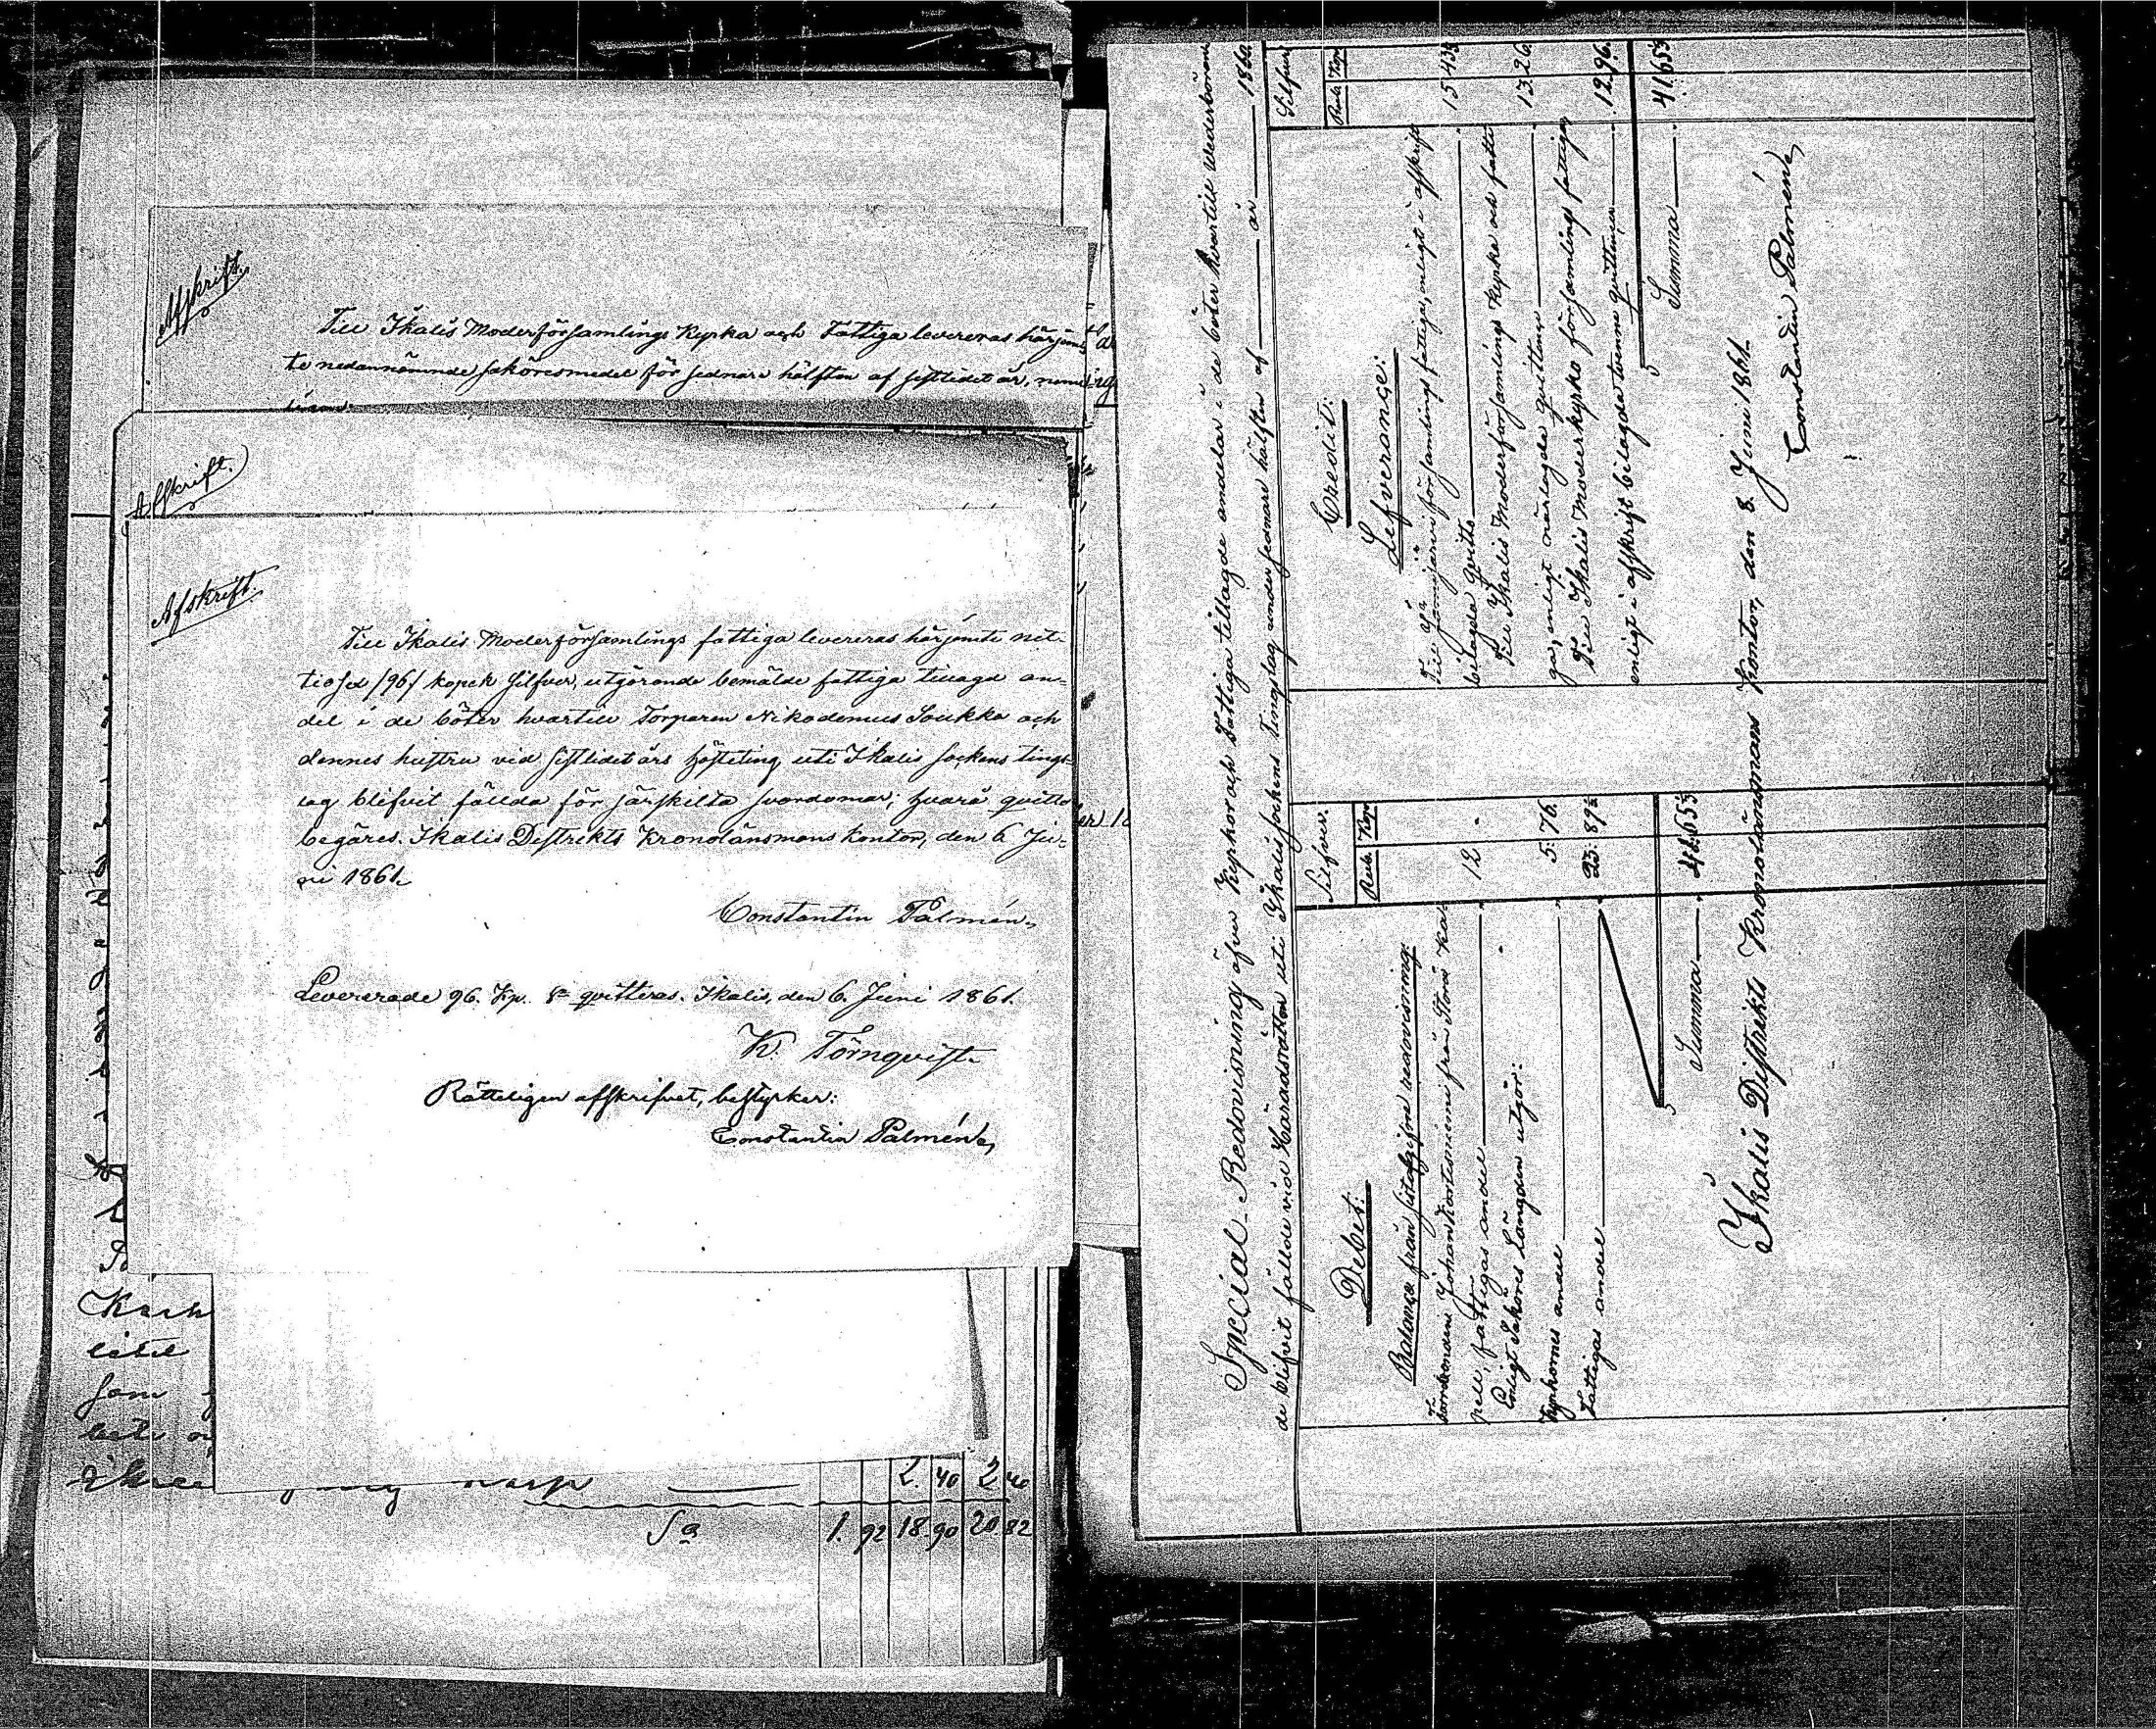 Afskrift.
Till Ikalis Moderförsamlings Kyrka och Fattiga levereras härjem-
te nedannämnde saköresmedel för sednare hälften af sistlidet år, neml
Afskrift.
Afskrift.
Till Ikalis Moderförsamlings fattiga levereras härjemte net-
tiosex /96/ kopek silfver, utgörande bemälde fattiga tillagd an-
del i de böter hvartill Torparen Nikodemus Soukka och
dennes hustru vid sistlidet års hösteting uti Ikalis sockens tings-
lag blifvit fällda för särskilta svordomar; hvarå qvitto
begäres. Ikalis Distrikts Kronolänsmans Kontor, den 6 Ju-
ni 1861.
Constantin Palmén.
Levererade 96. Kp. Sr qvitteras. Ikalis, den 6. Juni 1861.
K. Törnqvist.
Rätteligen afskrifvet, bestyrker:
Constantin Palmén
Karh
litet
som
bete
2. 40 2 40
Sa 1. 92 18. 90 20 82
Special-Redovisning öfver Kyrkor och Fattiga tillagde andelar i de böter hvartill Wederbörande
de blifvit fällde vid Häradsrätten uti Ikalis sockens Tingslag under sednare hälften af år 1860.
Debet:
Silfver.
Rub. Kop.
Balance från sistafgifne redovisning.
Torrskodens Johan Kortesniemi från Storå Ka-
pell, fattigas andel 12 -
Enligt Saköres Längden utgör:
Kyrkornes andel 5. 76.
Fattigas andel 23. 89½
Summa 41. 65½
Credit:
Silfver
Rub. Kop.
Lefverance:
Till Jämijärvi församlings fattiga, enligt i afskrift
bilagda qvitto 15 43½
Till Ikalis Moderförsamlings Kyrka och fatti-
ga, enligt närlagde qvittance 13. 26.
Till Ikalis Moderkyrko församlings fattiga,
enligt i afskrift bilagda tvenne qvittencer 12. 96.
Summa 41. 65½
Ikalis Distrikts Kronolänsmans Kontor, den 8. Juni 1861.
Constantin Palmén